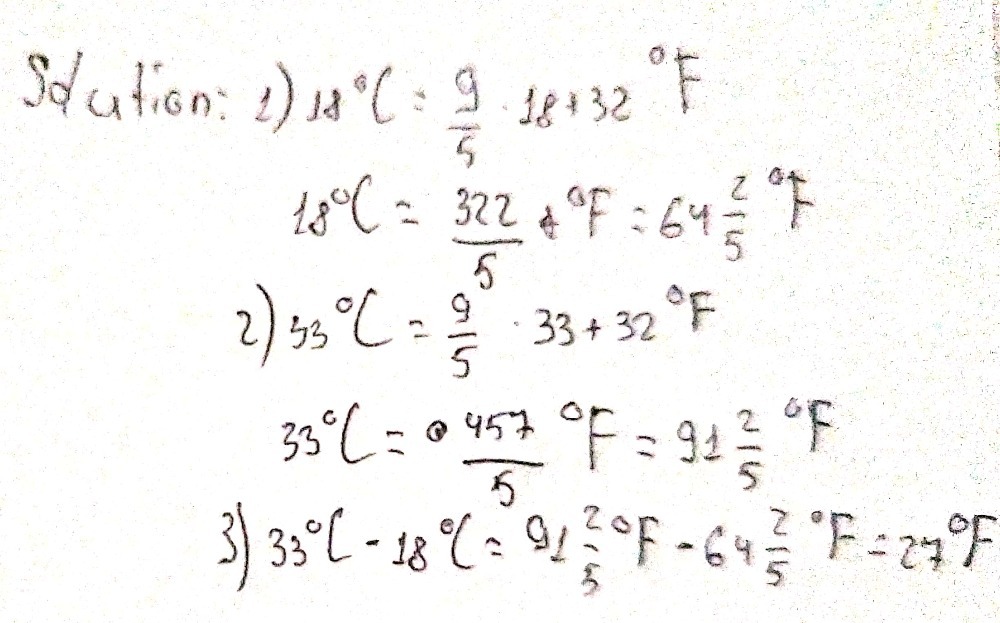 Solution: 1) 18°C = 9/5 · 18+32 °F
18°C = 322/5 °F = 64 2/5 °F
2) 33°C = 9/5 · 33+32 °F
33°C = 457/5 °F = 91 2/5 °F
3) 33°C - 18°C = 91 2/5 °F - 64 2/5 °F = 27°F